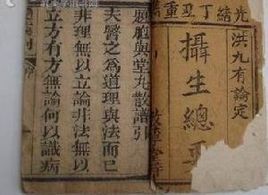 光緒丁亥重
洪九有論定
攝生總要
堂丸散譜引
夫醫之爲道理與法而已
非理無以立論非法無以
立方有方無論何以識病